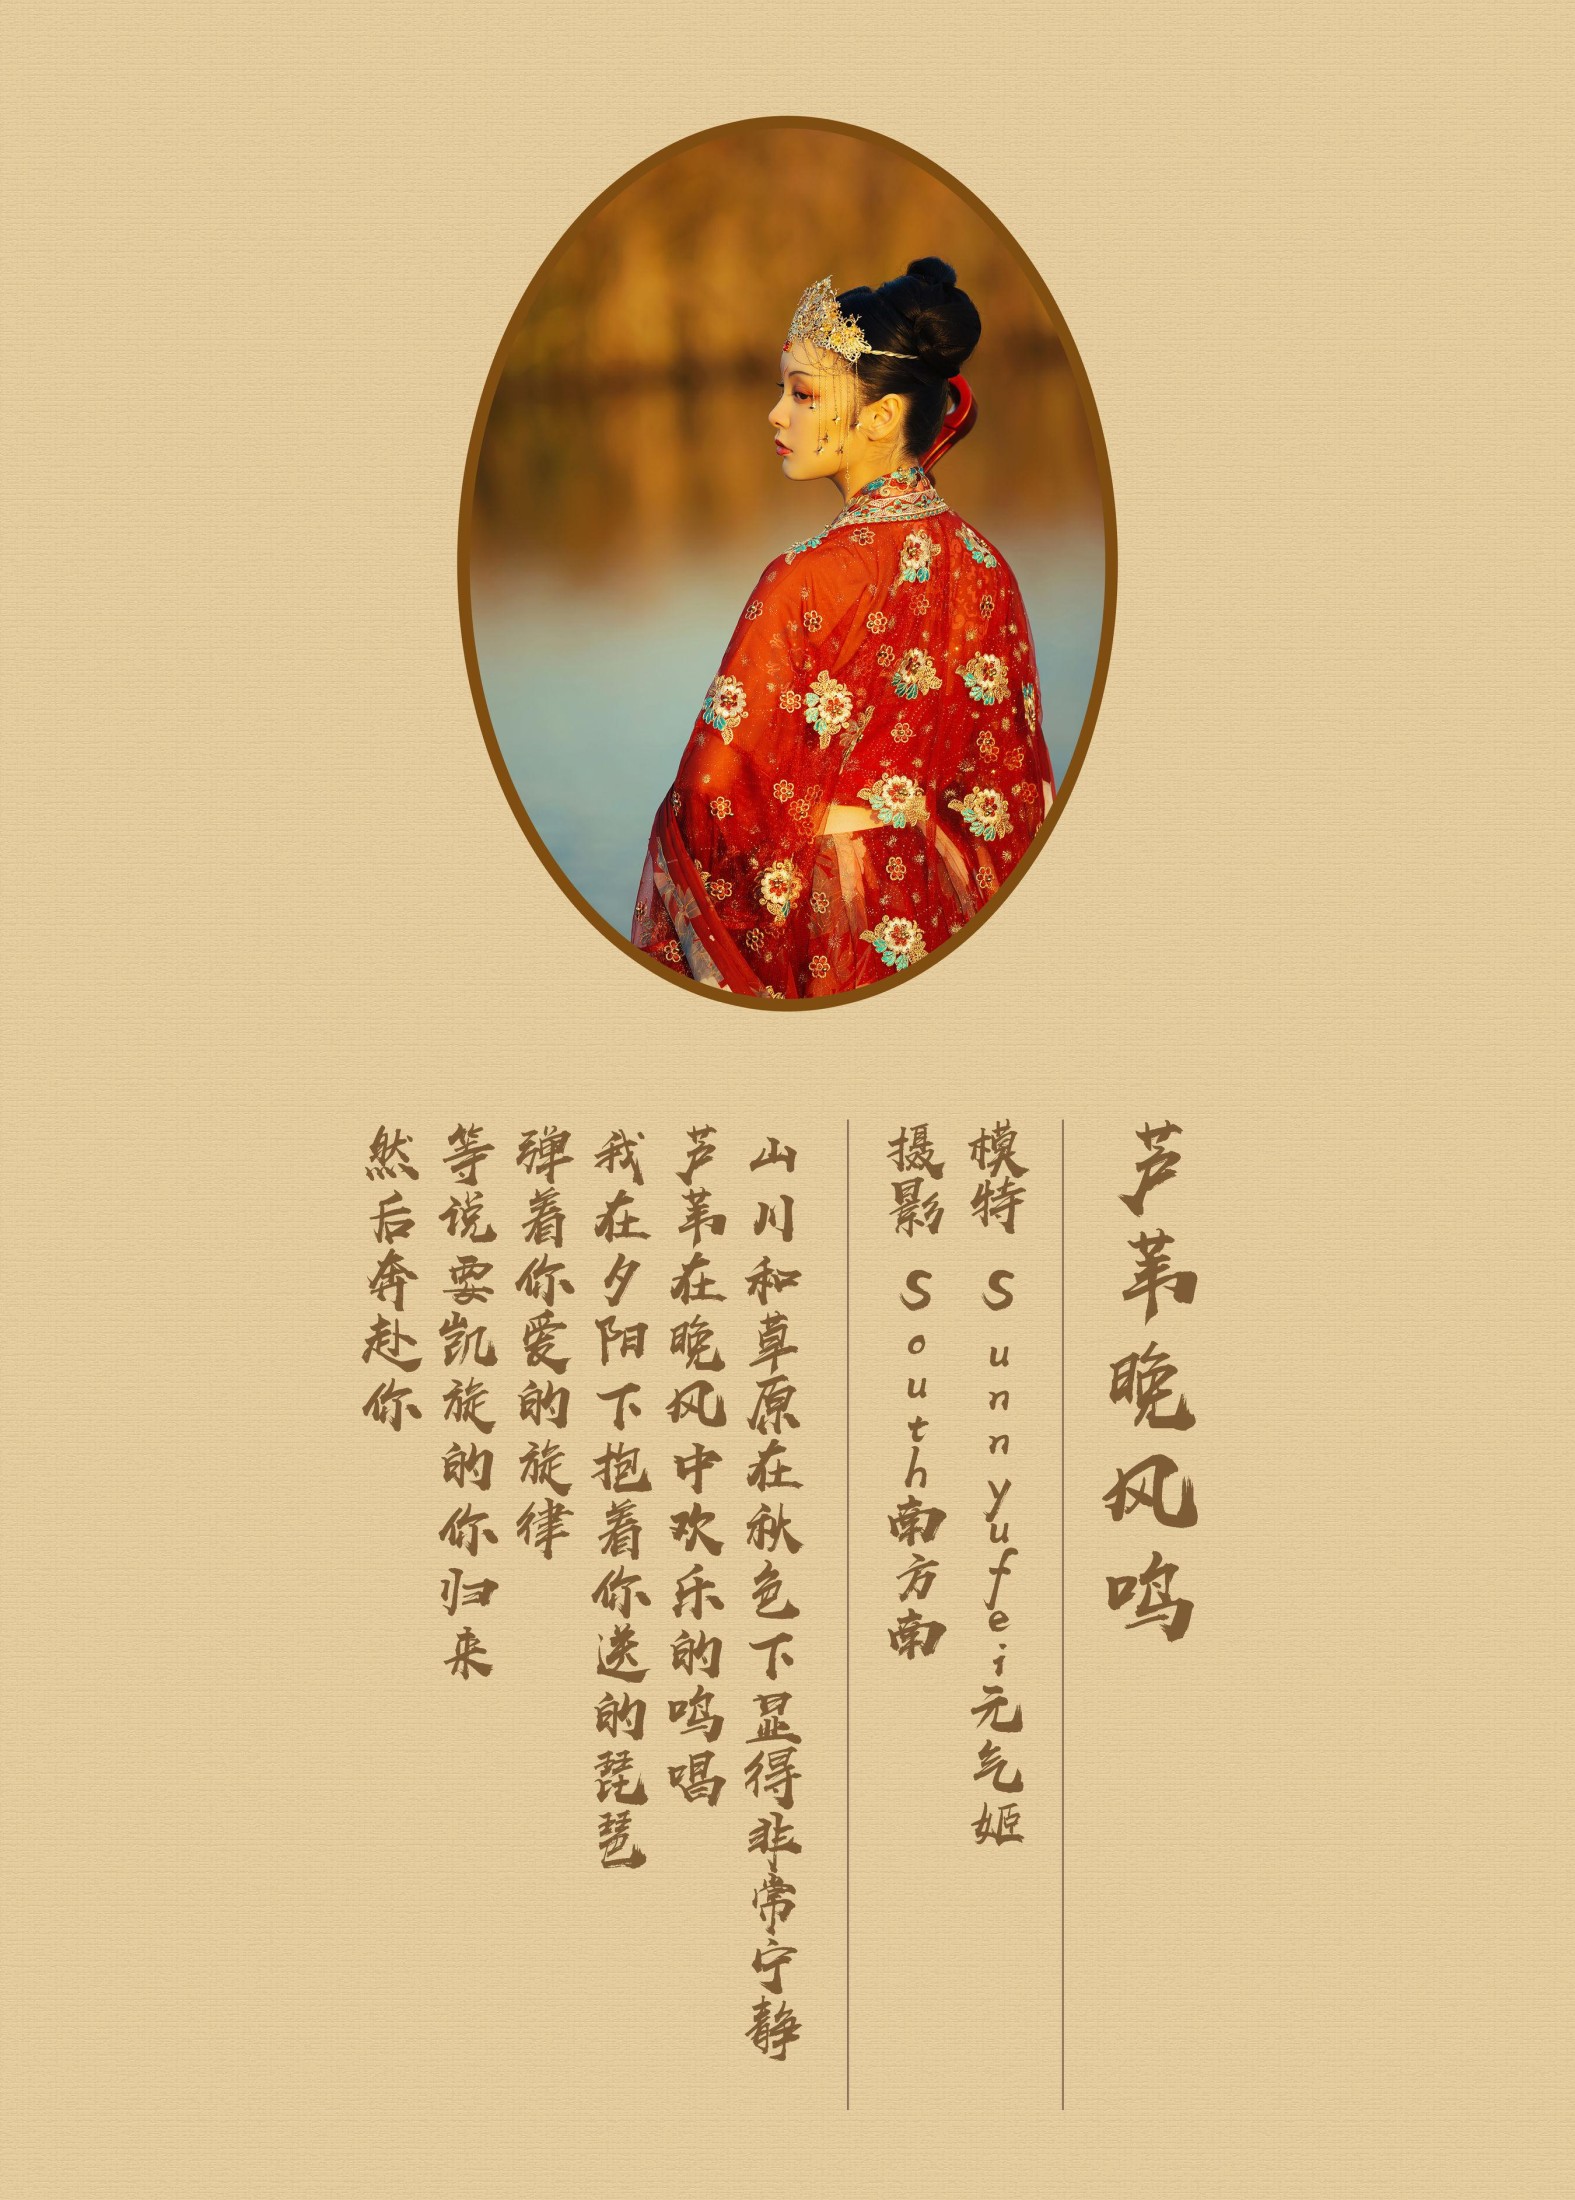 芦苇晚风鸣
模特 Sunnyufei元气姬
摄影 South南方南
山川和草原在秋色下显得非常宁静
芦苇在晚风中欢乐的鸣唱
我在夕阳下抱着你送的琵琶
弹着你爱的旋律
等说要凯旋的你归来
然后奔赴你